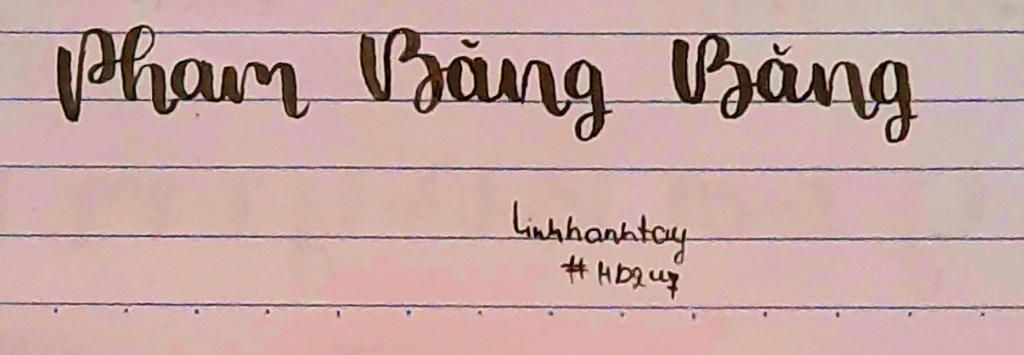 Phạm Băng Băng
linhhanhtay
#HD247